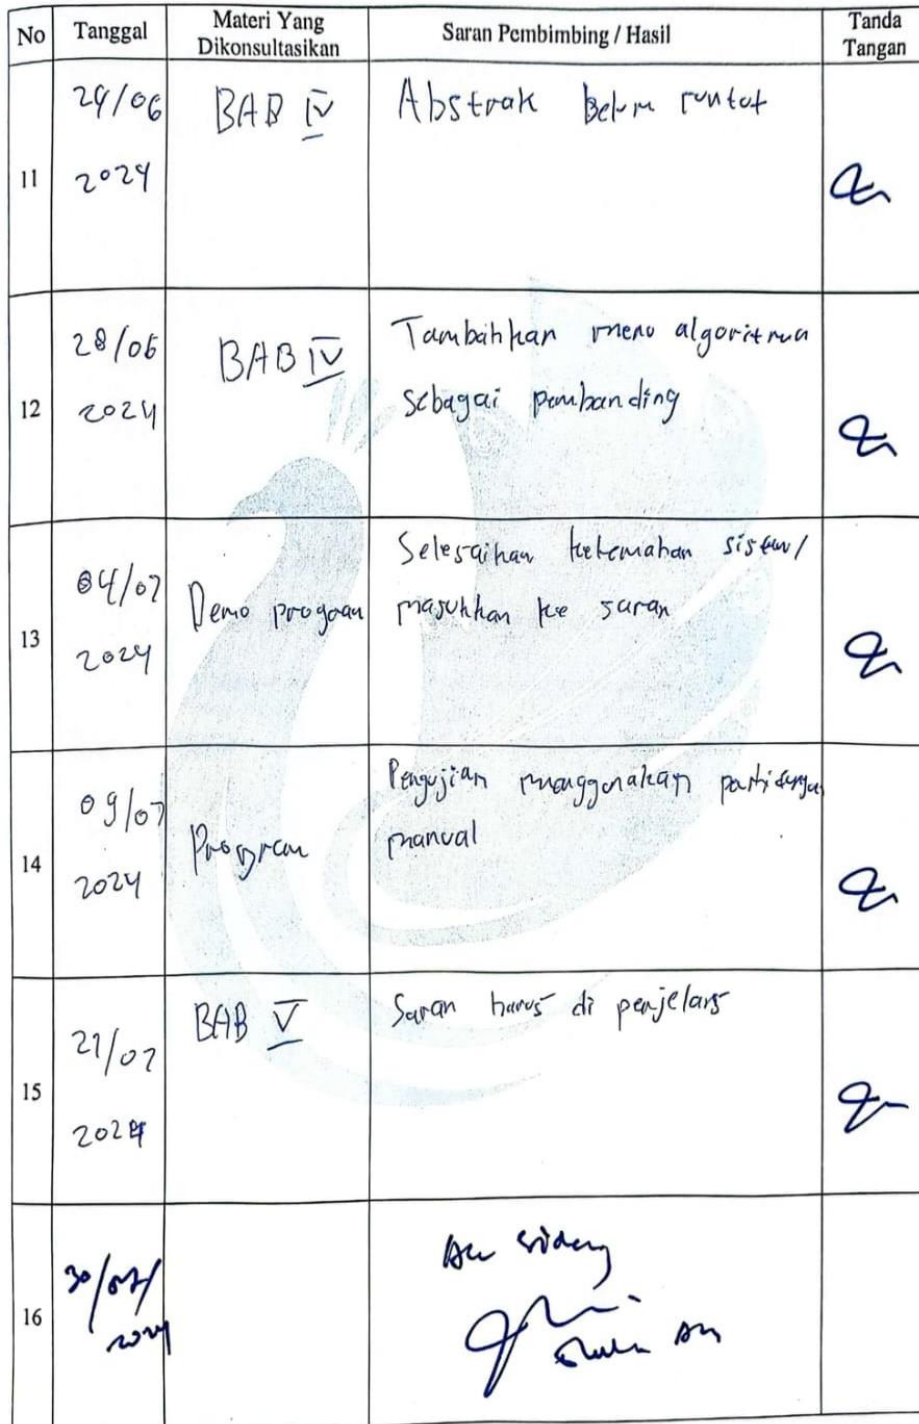 No Tanggal Materi Yang Dikonsultasikan Saran Pembimbing / Hasil Tanda Tangan
11 24/06 2024 BAB IV Abstrak Belum runtut
12 28/06 2024 BAB IV Tambahkan menu algoritma
sebagai pembanding
13 04/07 2024 Demo progaan Selesaihan kelemahan sistem/
masukkan ke saran
14 09/07 2024 Program Pengujian menggunakan
manual
15 21/07 2024 BAB V Saran harus di perjelas
16 30/07/ 2024 Acc sidang